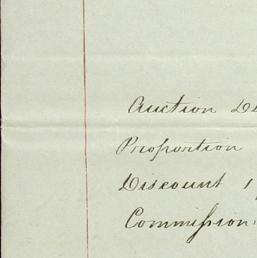 Auction
Proportion
Discount
Commission